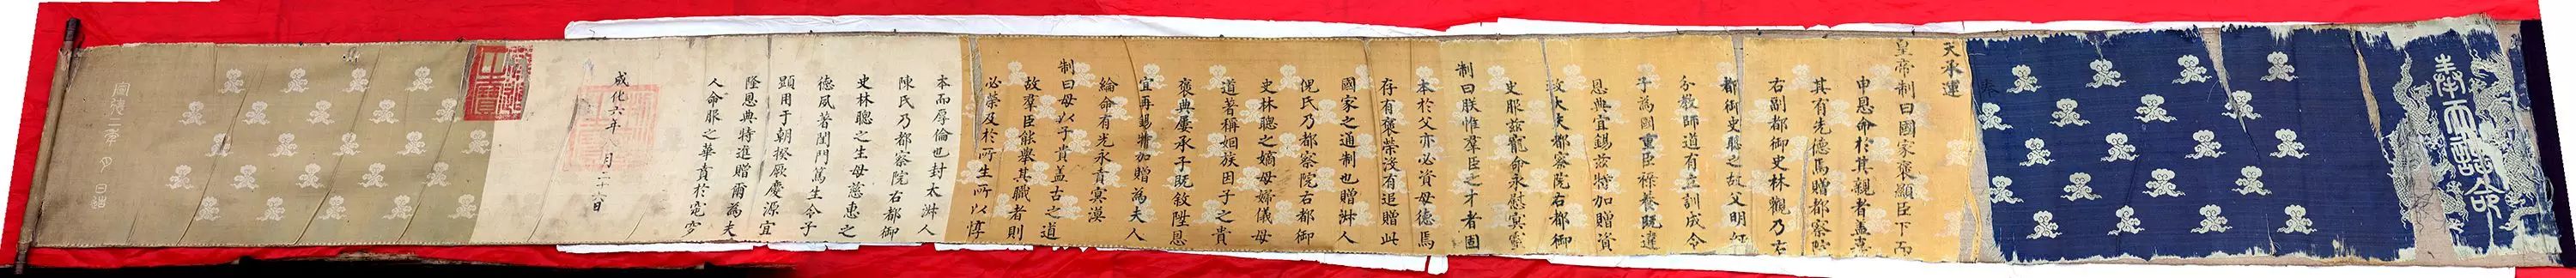 奉天誥命
奉
天承運
皇帝制曰國家褒顯臣下而
申恩命於其親者蓋嘉
其有先德焉贈都察院
右副都御史林觀乃右
都御史聰之故父明師
分教師道有立訓成令
子為國重臣祿養既違
恩典宜錫茲特加贈資
政大夫都察院右都御
史服茲寵命永慰冥靈
制曰朕惟羣臣之才者固
本於父亦必資母德焉
存有褒榮沒有追贈此
國家之通制也贈淑人
倪氏乃都察院右都御
史林聰之嫡母婦儀母
道著稱姻族因子之貴
褒典屢承子既敘陞恩
宜再錫茲加贈為夫人
綸命有光永賁冥漠
制曰母以子貴蓋古之道
故羣臣能舉其職者則
必榮及於所生所以惇
本而厚倫也封太淑人
陳氏乃都察院右都御
史林聰之生母慈惠之
德夙著閨門篤生令子
顯用于朝揆厥慶源宜
隆恩典特進贈爾為夫
人命服之華賁於窀穸
成化六年八月二十六日